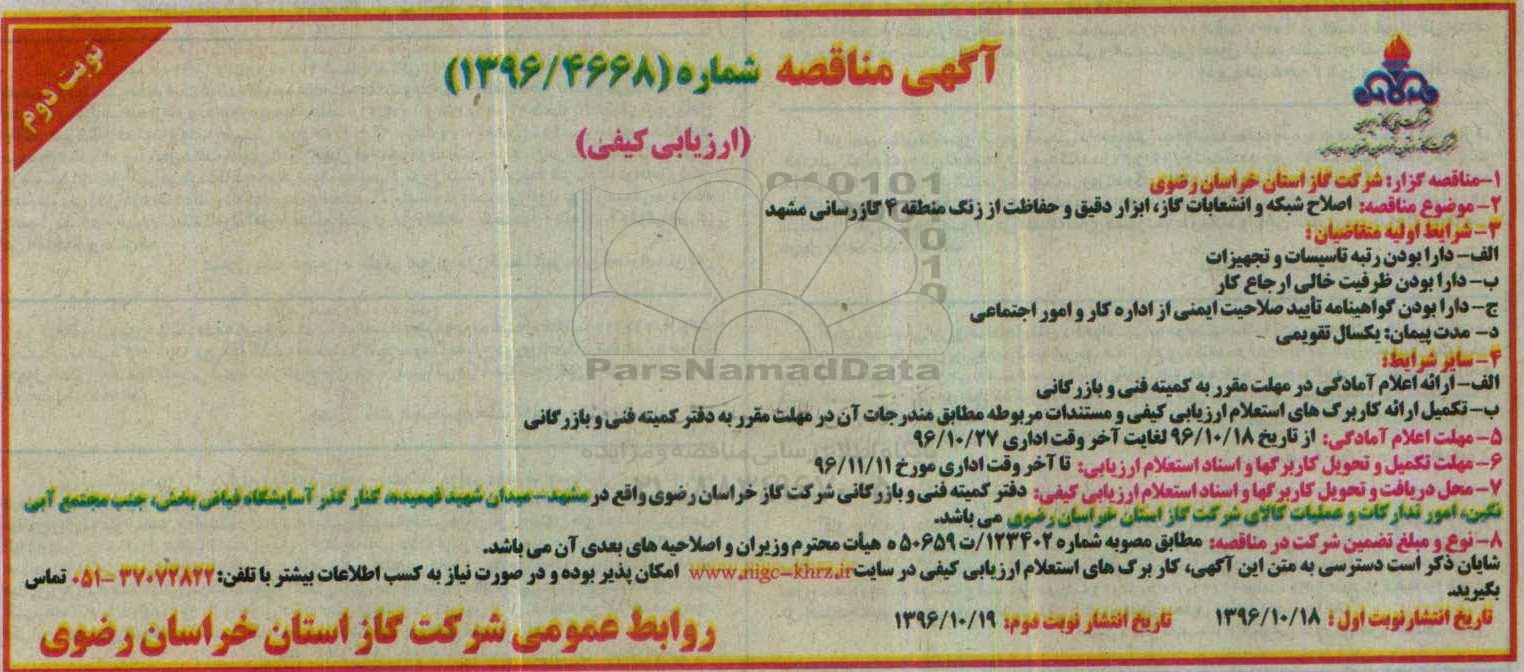 نوبت دوم
آگهی مناقصه شماره (۱۳۹۶/۴۶۶۸)
(ارزیابی کیفی)
۱- مناقصه گزار: شرکت گاز استان خراسان رضوی
۲- موضوع مناقصه: اصلاح شبکه و انشعابات گاز، ابزار دقیق و حفاظت از زنگ منطقه ۴ گازرسانی مشهد
۳- شرایط اولیه متقاضیان:
الف- دارا بودن رتبه تاسیسات و تجهیزات
ب- دارا بودن ظرفیت خالی ارجاع کار
ج- دارا بودن گواهینامه تأیید صلاحیت ایمنی از اداره کار و امور اجتماعی
د- مدت پیمان: یکسال تقویمی
۴- سایر شرایط:
الف- ارائه اعلام آمادگی در مهلت مقرر به کمیته فنی و بازرگانی
ب- تکمیل ارائه کاربرگ های استعلام ارزیابی کیفی و مستندات مربوطه مطابق مندرجات آن در مهلت مقرر به دفتر کمیته فنی و بازرگانی
۵- مهلت اعلام آمادگی: از تاریخ ۹۶/۱۰/۱۸ لغایت آخر وقت اداری ۹۶/۱۰/۲۷
۶- مهلت تکمیل و تحویل کاربرگها و اسناد استعلام ارزیابی: تا آخر وقت اداری مورخ ۹۶/۱۱/۱۱
۷- محل دریافت و تحویل کاربرگها و اسناد استعلام ارزیابی کیفی: دفتر کمیته فنی و بازرگانی شرکت گاز خراسان رضوی واقع در مشهد- میدان شهید فهمیده، کنار گذر آسایشگاه فیاض بخش، جنب مجتمع آبی
نگین، امور تدارکات و عملیات کالای شرکت گاز استان خراسان رضوی می باشد.
۸- نوع و مبلغ تضمین شرکت در مناقصه: مطابق مصوبه شماره ۱۲۳۴۰۲/ت ۵۰۶۵۹ ه هیأت محترم وزیران و اصلاحیه های بعدی آن می باشد.
شایان ذکر است دسترسی به متن این آگهی، کار برگ های استعلام ارزیابی کیفی در سایت www.nigc-khrz.ir امکان پذیر بوده و در صورت نیاز به کسب اطلاعات بیشتر با تلفن: ۳۷۰۷۲۸۲۲ -۰۵۱ تماس
بگیرید.
تاریخ انتشار نوبت اول: ۱۳۹۶/۱۰/۱۸ تاریخ انتشار نوبت دوم: ۱۳۹۶/۱۰/۱۹
روابط عمومی شرکت گاز استان خراسان رضوی
ParsNamadData